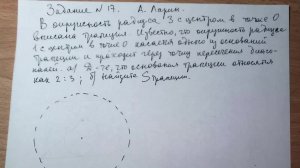 Задание №17. А. Ларин.
В окружность радиуса 3 с центром в точке О
вписана трапеция. Известно, что окружность радиуса
1 с центром в точке О касается одного из оснований
трапеции и проходит через точку пересечения диаго-
налей. а) что основания трапеции относятся
как 2:3; б) найдите S трапеции.